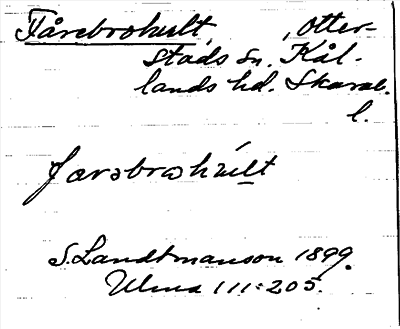 Fårebrohult, Otter-
stads sn. Kål-
lands hd. Skarab.
l.
S. Landtmanson 1899.
Ulma 111:205.